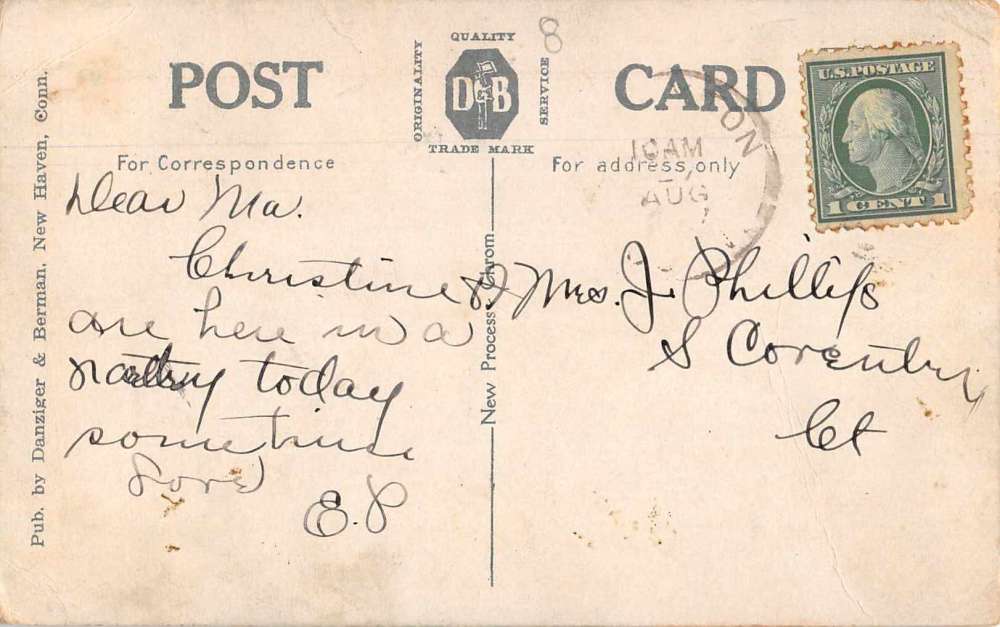 POST CARD
QUALITY
ORIGINALITY
D&B
SERVICE
TRADE MARK
8
U.S. POSTAGE
1 CENT 1
TON
10 AM
AUG
For Correspondence
For address only
Dear Ma.
Christine &
are here in a
today
sometime
Love
E.P
Mrs. J. Phillips
S Coventry
Ct
New Process
Pub. by Danziger & Berman, New Haven, Conn.